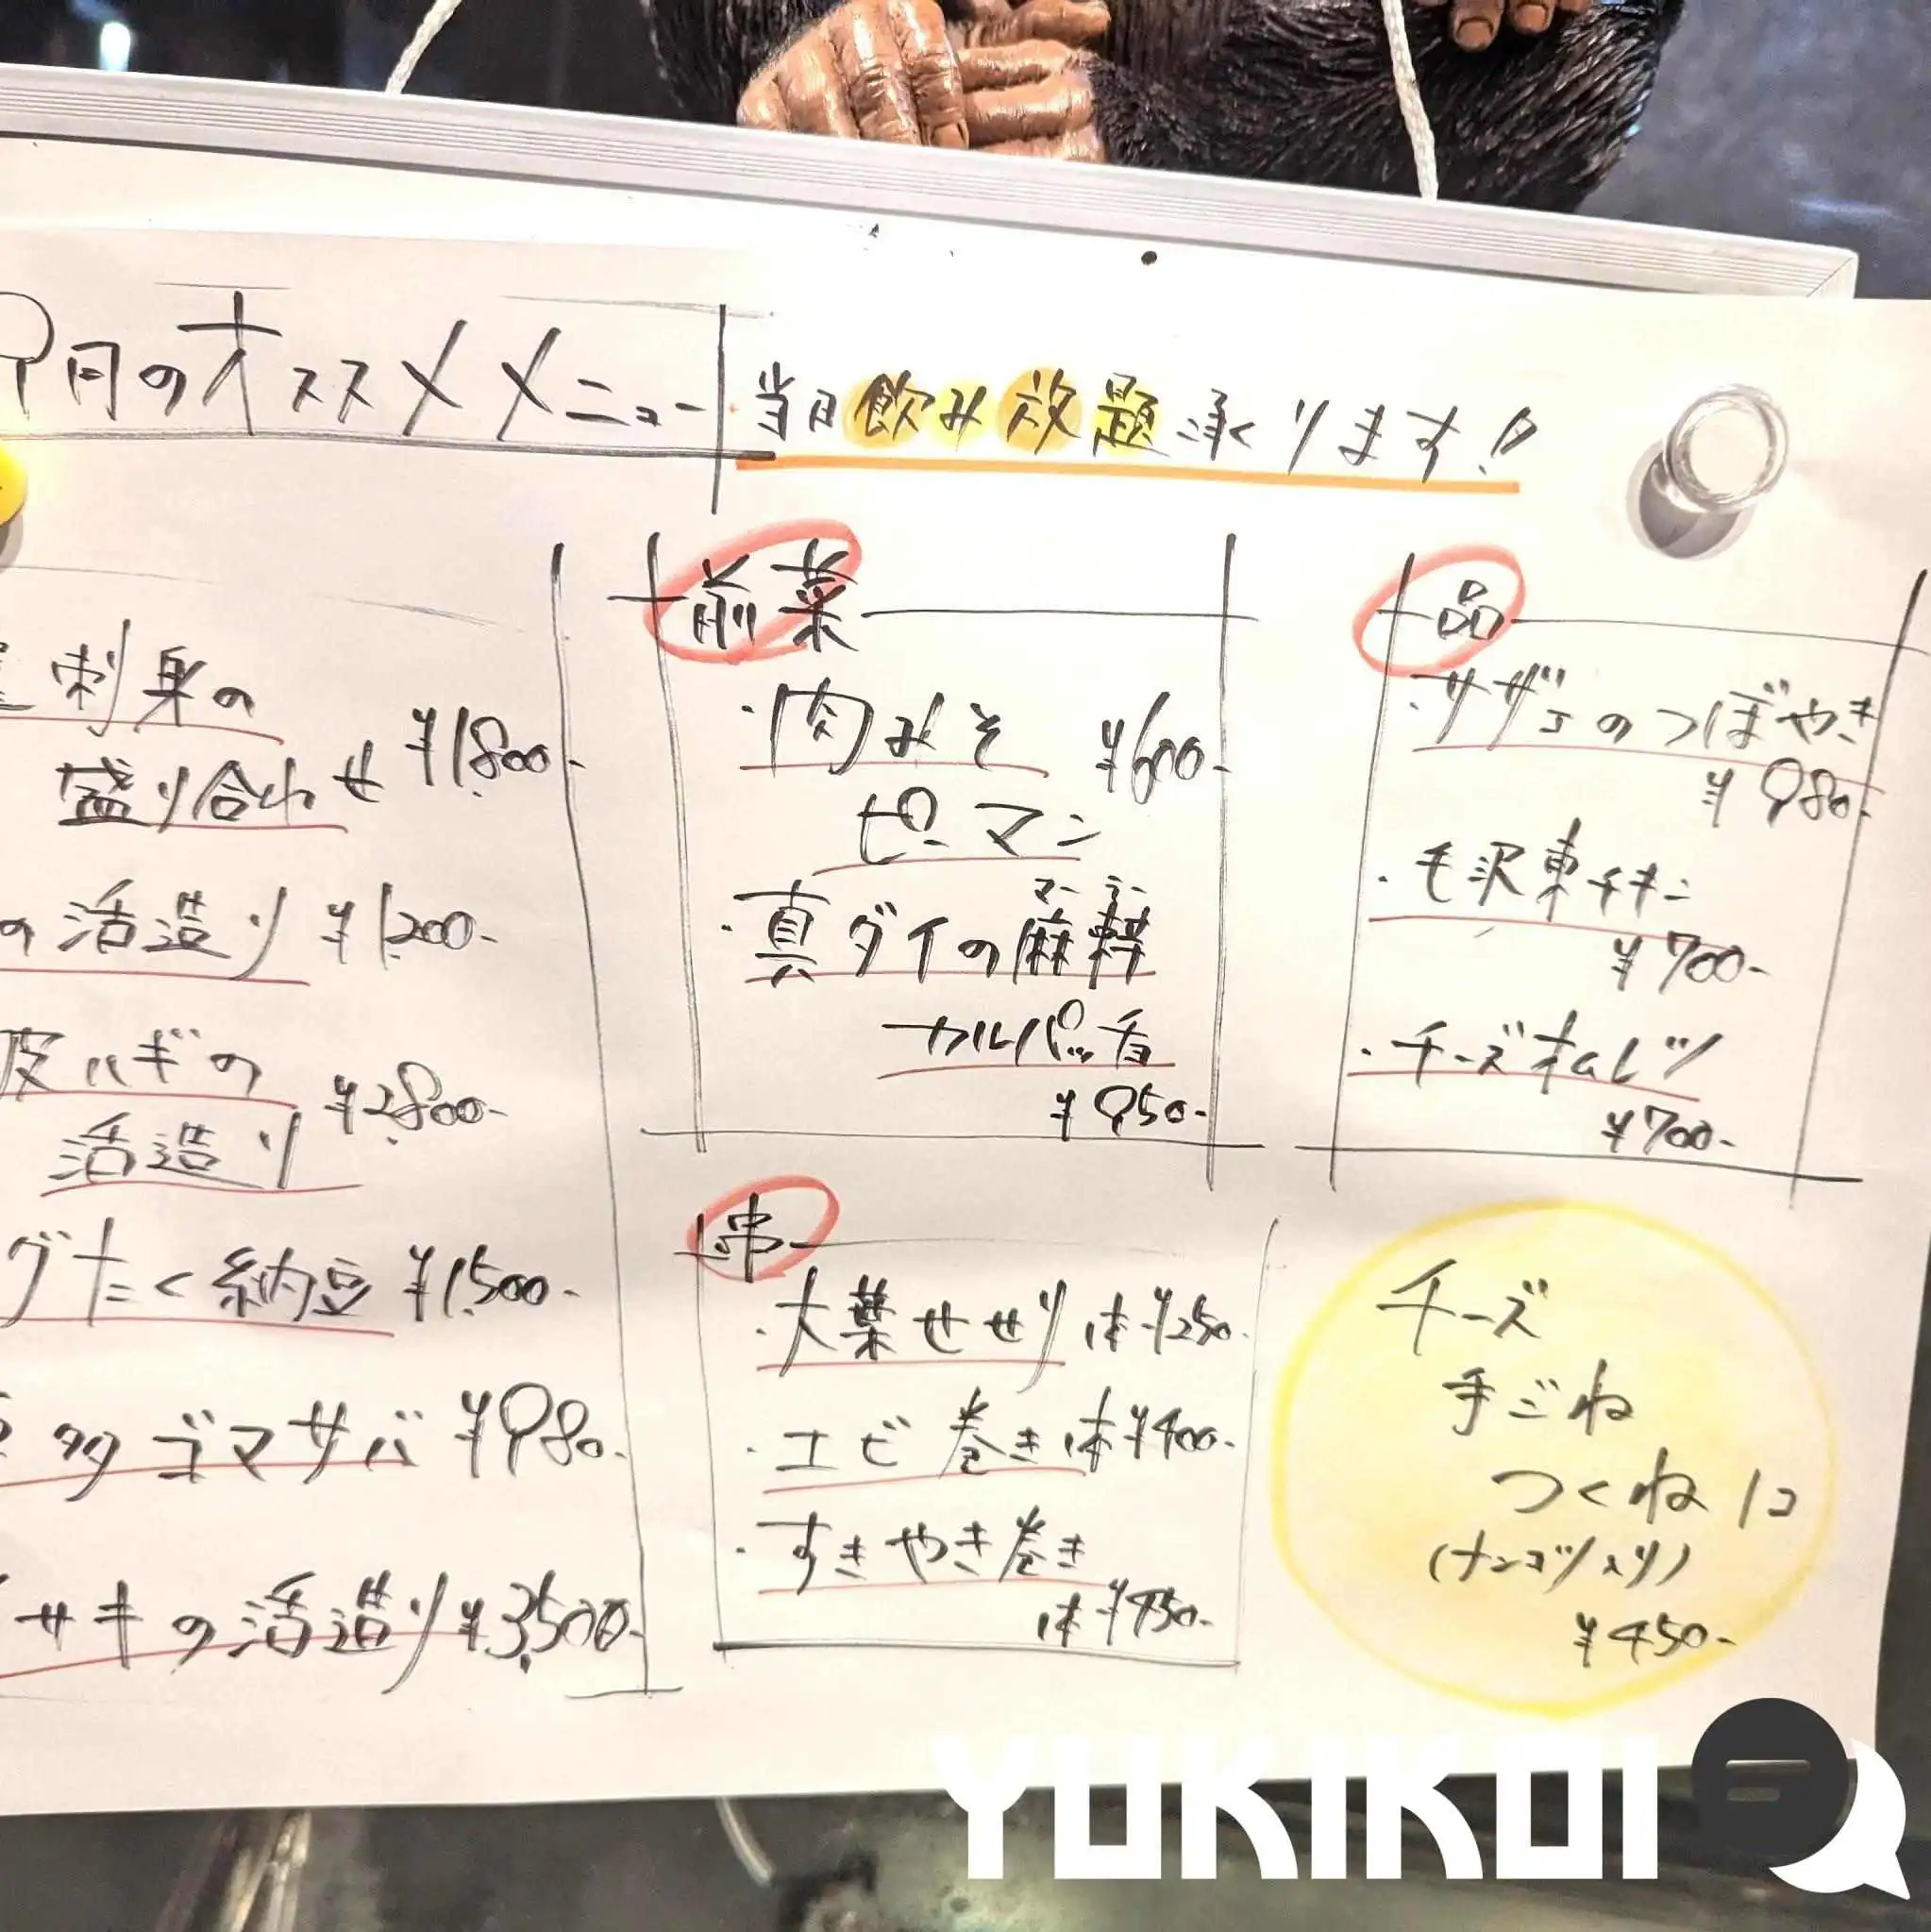 9月のオススメメニュー
当日飲み放題承ります!!
刺身の
盛り合わせ ¥1,800-
の活造り ¥1,200-
皮ハギの ¥2,800-
活造り
グたく納豆 ¥1,500-
ゴマサバ ¥980-
サキの活造り ¥3,500-
前菜
・肉みそ ¥600-
ピーマン
マーラー
・真ダイの麻辣
カルパッチョ
¥950-
一品
・サザエのつぼやき
¥980-
・毛沢東チキン
¥700-
・チーズオムレツ
¥700-
串
・大葉せせり 1本¥250-
・エビ巻き 1本¥400-
・すきやき巻き
1本¥450-
チーズ
手ごね
つくね 1コ
(ナンコツ入り)
¥450-
YUKIKOI